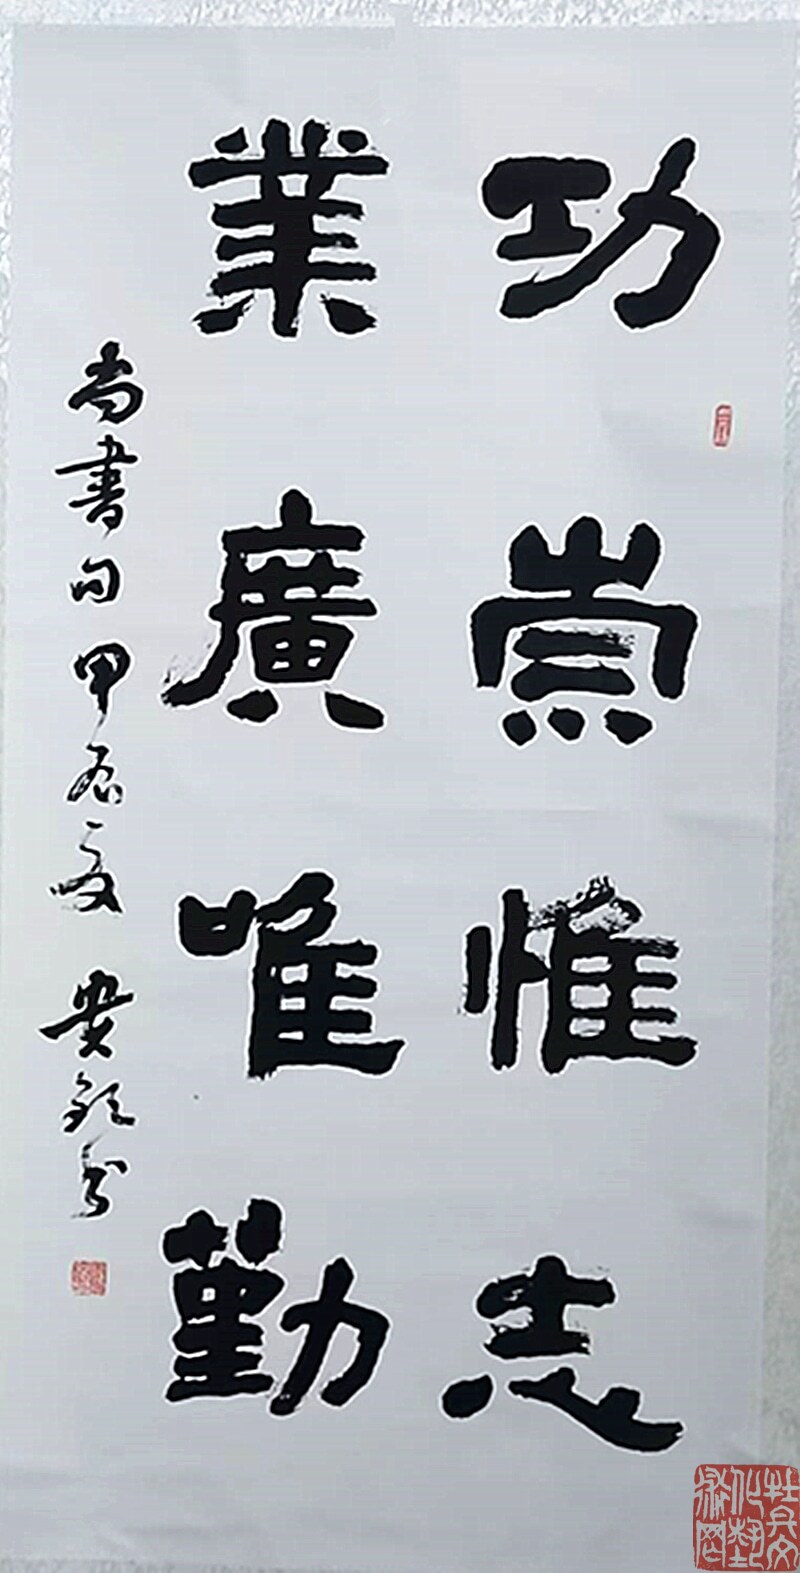 功崇惟志
業廣唯勤
尚書句甲辰夏